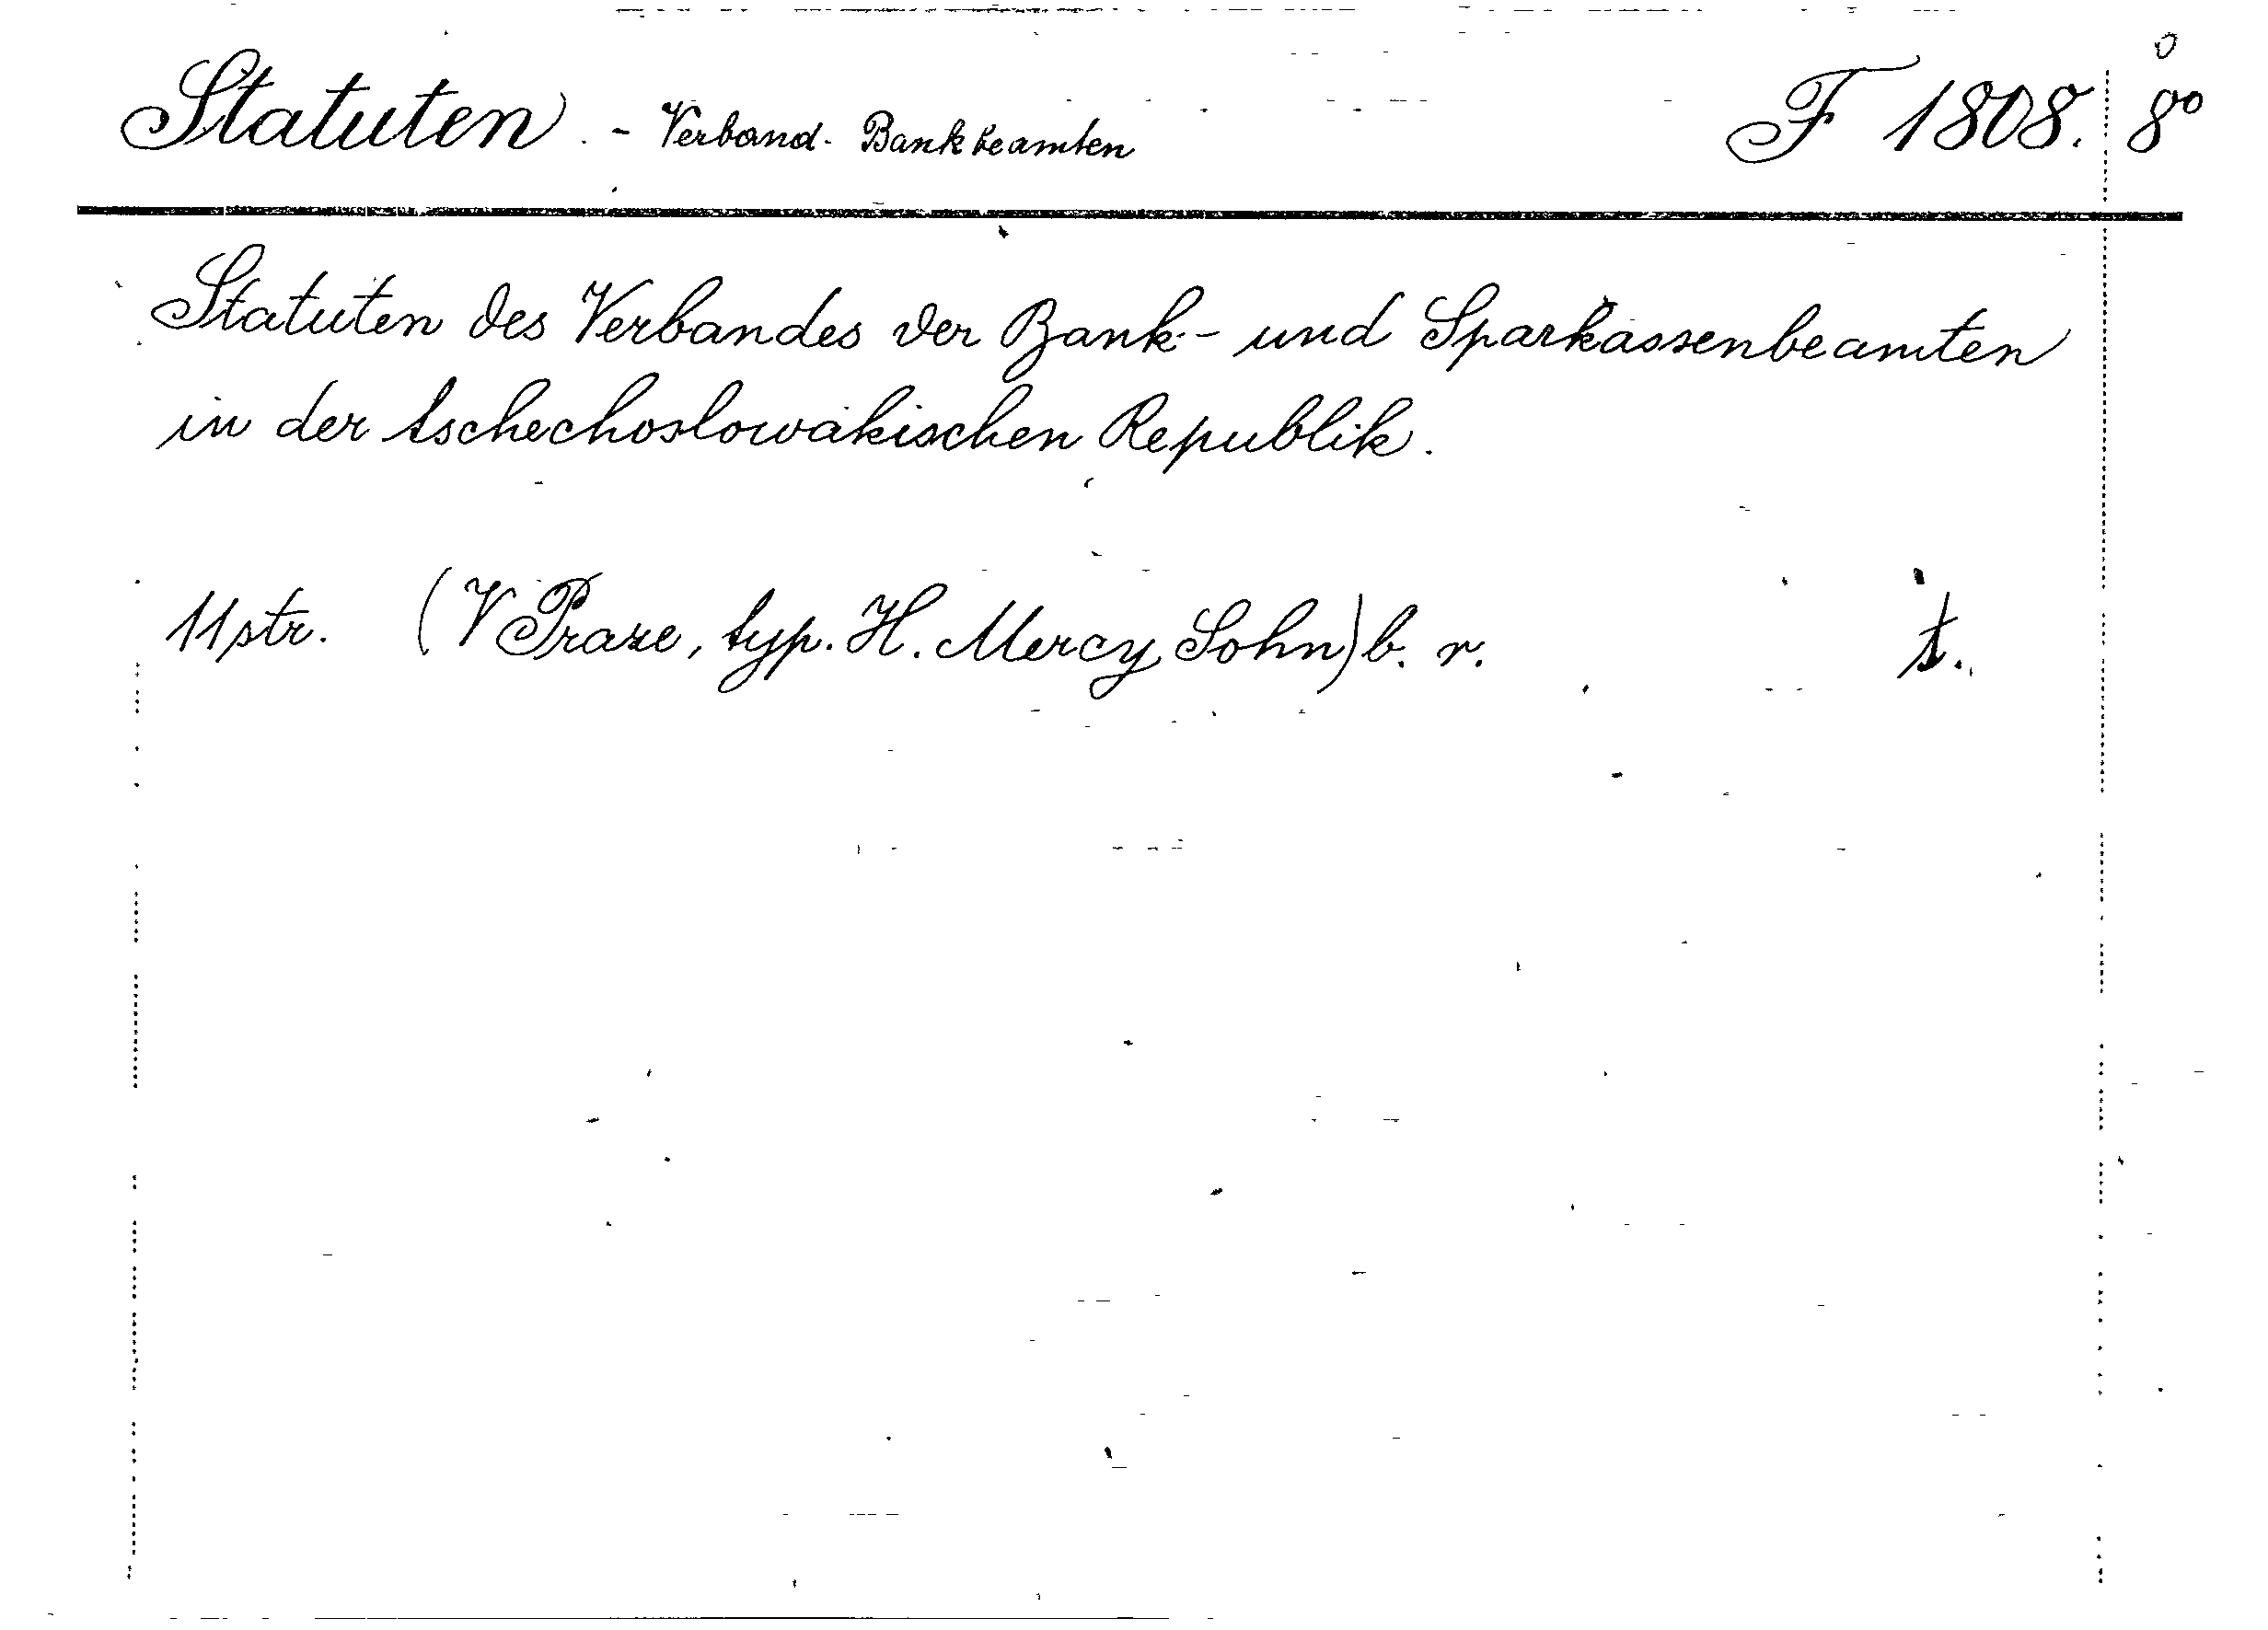 Statuten. - Verband. Bankbeamten F 1808. 8°
Statuten des Verbandes der Bank- und Sparkassenbeamten
in der tschechoslowakischen Republik.
11 str. (V Praze, typ. H. Mercy Sohn) b. r. t.